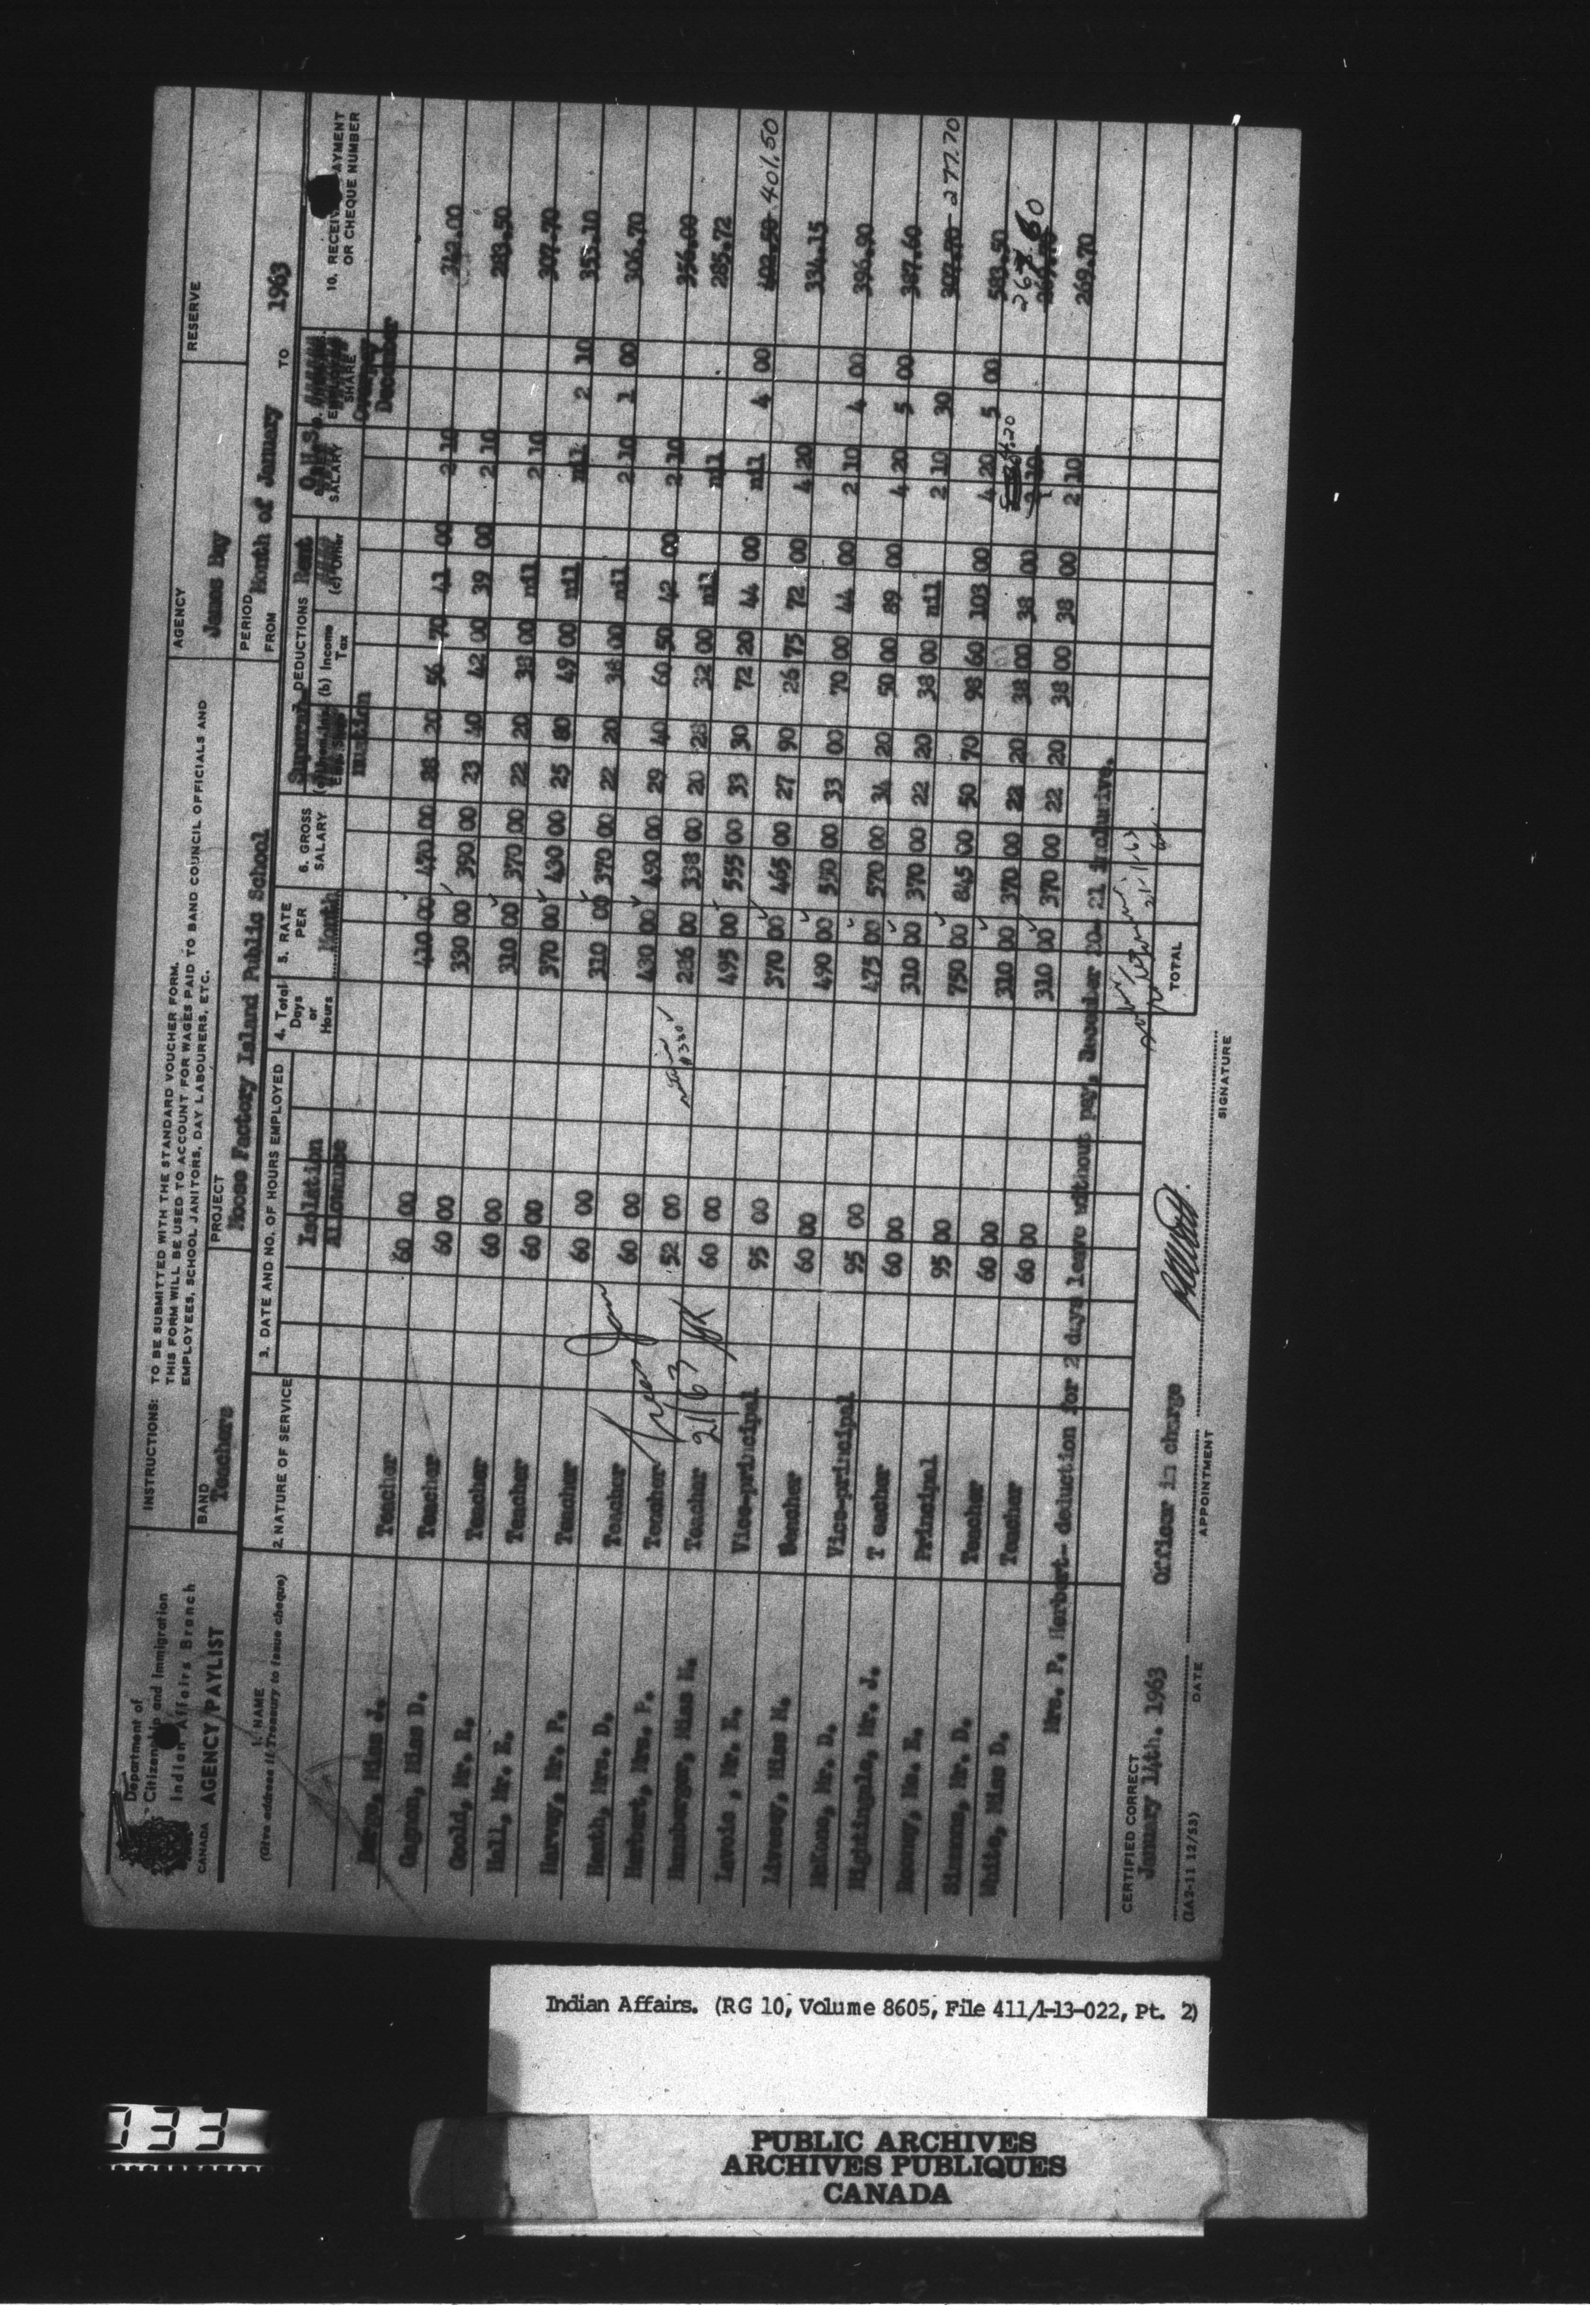 Department of
Citizenship and Immigration
Indian Affairs Branch
CANADA AGENCY PAYLIST
INSTRUCTIONS: TO BE SUBMITTED WITH THE STANDARD VOUCHER FORM.
THIS FORM WILL BE USED TO ACCOUNT FOR WAGES PAID TO BAND COUNCIL OFFICIALS AND
EMPLOYEES, SCHOOL JANITORS, DAY LABOURERS, ETC.
BAND Teachers
PROJECT Moose Factory Island Public School
AGENCY James Bay
RESERVE
PERIOD
FROM Month of January TO 1963
1. NAME
(Give address if Treasury to issue cheque)
2. NATURE OF SERVICE
3. DATE AND NO. OF HOURS EMPLOYED
Isolation
Allowance
4. Total
Days
or
Hours
5. RATE
PER
Month
6. GROSS
SALARY
DEDUCTIONS
(b) Income
Tax
Rent
(c) Other
SALARY
SHARE
December
OR CHEQUE NUMBER
Miss J. Teacher 60 00 410 00 470 00 28 20 56 70 41 00 2 10 342.00
Gagnon, Miss D. Teacher 60 00 330 00 390 00 23 40 42 00 39 00 2 10 283.50
Gould, Mr. E. Teacher 60 00 310 00 370 00 22 20 38 00 nil 2 10 307.70
Hall, Mr. E. Teacher 60 00 370 00 430 00 25 80 49 00 nil nil 2 10 353.10
Harvey, Mr. P. Teacher 60 00 310 00 370 00 22 20 38 00 nil 2 10 1 00 306.70
Heath, Mrs. D. Teacher 60 00 430 00 490 00 29 40 60 50 42 00 2 10 356.00
Herbert, Mrs. P. Teacher 52 00 286 00 338 00 20 28 32 00 nil nil 285.72
Hunsberger, Miss N. Teacher 60 00 495 00 555 00 33 30 72 20 44 00 nil 4 00 402.50 401.50
Lavoie, Mr. E. Vice-principal 95 00 370 00 465 00 27 90 26 75 72 00 4 20 334.15
Livesey, Miss M. Teacher 60 00 490 00 550 00 33 00 70 00 44 00 2 10 4 00 396.90
Mr. D. Vice-principal 95 00 475 00 570 00 34 20 50 00 89 00 4 20 5 00 387.60
Nightingale, Mr. J. T eacher 60 00 310 00 370 00 22 20 38 00 nil 2 10 30 307.70 277.70
E. Principal 95 00 750 00 845 00 50 70 98 60 103 00 4 20 5 00 583.50
Mr. D. Teacher 60 00 310 00 370 00 22 20 38 00 38 00 2 10 4.20 267.60
White, Miss D. Teacher 60 00 310 00 370 00 22 20 38 00 38 00 2 10 269.70
Mrs. P. Herbert- deduction for 2 days leave without pay, December 20- 21 inclusive.
21/63
21/1/63
TOTAL
CERTIFIED CORRECT
January 14th. 1963 Officer in charge
DATE APPOINTMENT SIGNATURE
(IA2-11 12/53)
Indian Affairs. (RG 10, Volume 8605, File 411/1-13-022, Pt. 2)
733
PUBLIC ARCHIVES
ARCHIVES PUBLIQUES
CANADA